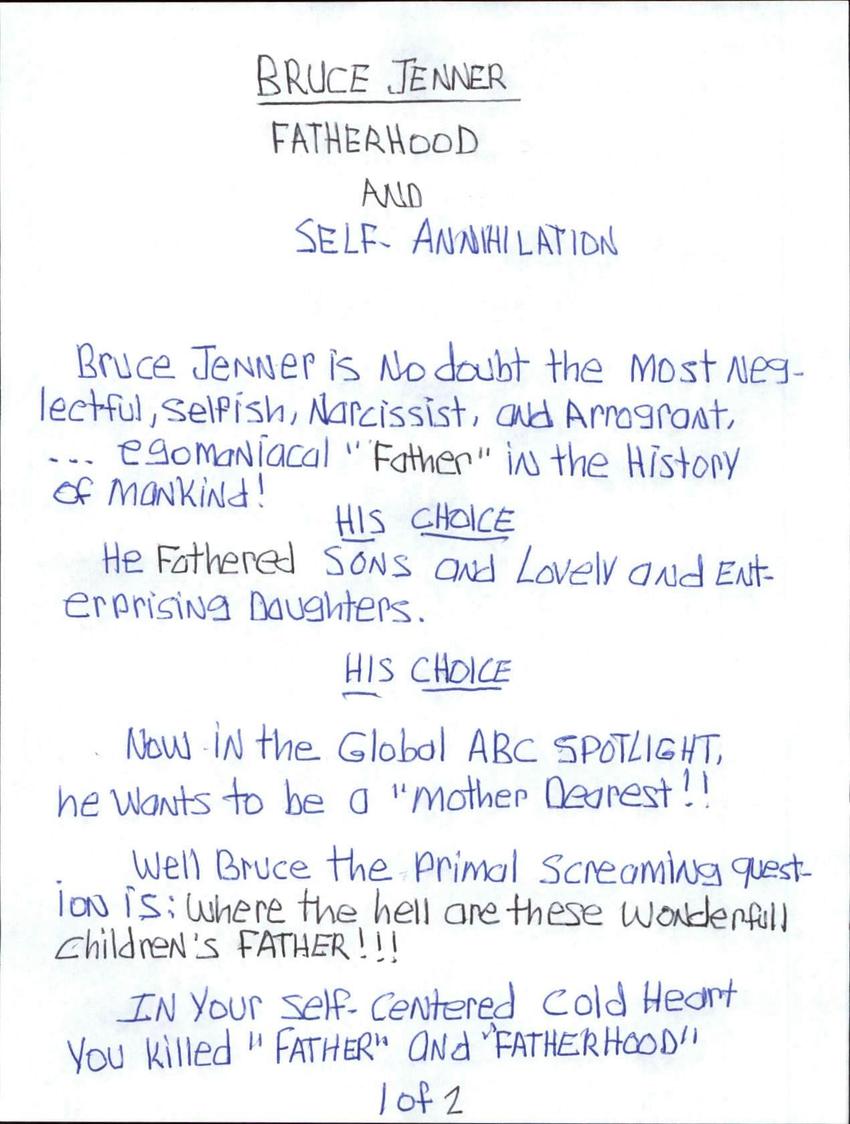 BRUCE JENNER
FATHERHOOD
AND
SELF- ANNIHILATION
Bruce Jenner is No doubt the Most Neg-
lectful, Selfish, Narcissist, and Arrogrant,
--- egomaniacal "Father" in the History
of Mankind!
HIS CHOICE
He Fathered SONS and Lovely and Ent-
erprising Daughters.
HIS CHOICE
Now in the Global ABC SPOTLIGHT,
he wants to be a "Mother Dearest!!
Well Bruce the Primal Screaming quest-
ion is: Where the hell are these Wonderfull
Children's FATHER!!!
IN Your self- centered Cold Heart
You killed "FATHER" and "FATHERHOOD"
1 of 2